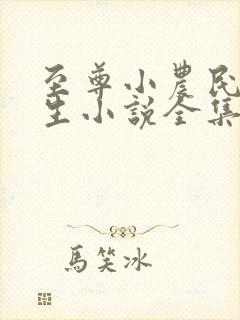 至尊小農民
生小説全集
馬笑冰